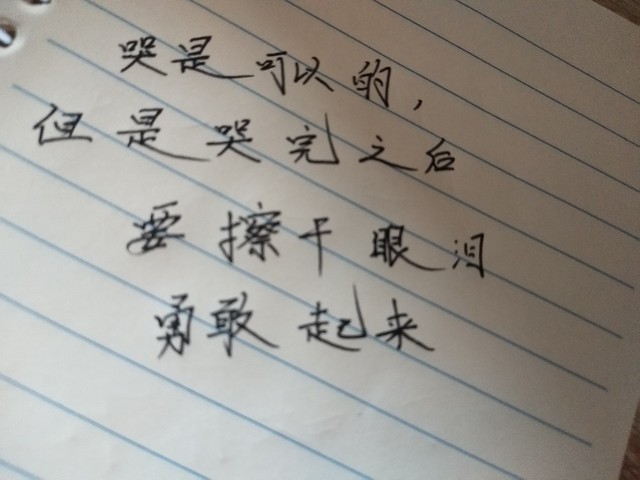 哭是可以的，
但是哭完之后
要擦干眼泪
勇敢起来